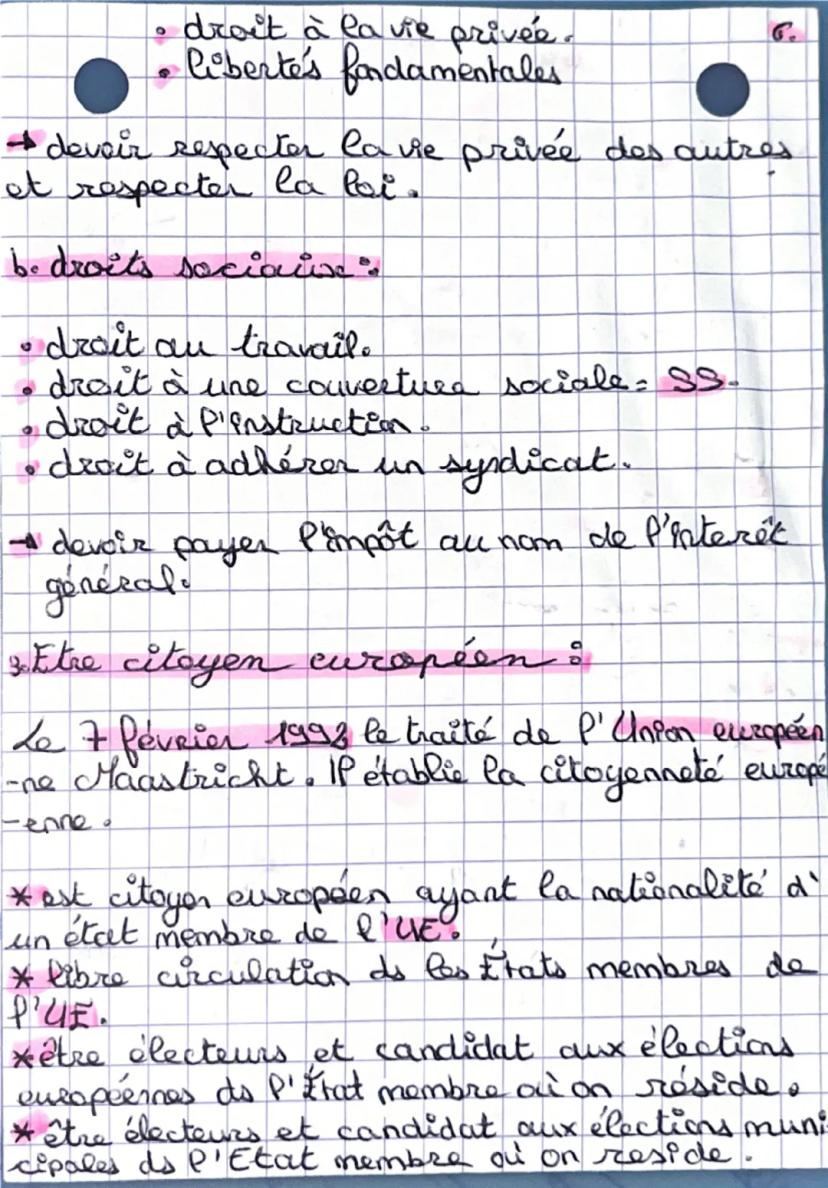 • droit à la vie privée. 6.
• libertés fondamentales
→ devoir respecter la vie privée des autres
et respecter la loi.
b. droits sociaux :
• droit au travail.
• droit à une couverture sociale = SS.
• droit à l'instruction.
• droit à adhérer un syndicat.
→ devoir payer l'impôt au nom de l'interêt
général.
3. Etre citoyen européen :
Le 7 février 1992 le traité de l'Union européen
-ne Maastricht. Il établie la citoyenneté europé
-enne.
* est citoyen européen ayant la nationalité d'
un état membre de l'UE.
* libre circulation ds les États membres de
l'UE.
* être électeurs et candidat aux élections
européennes ds l'État membre où on réside.
* être électeurs et candidat aux élections muni
cipales ds l'Etat membre où on reside.